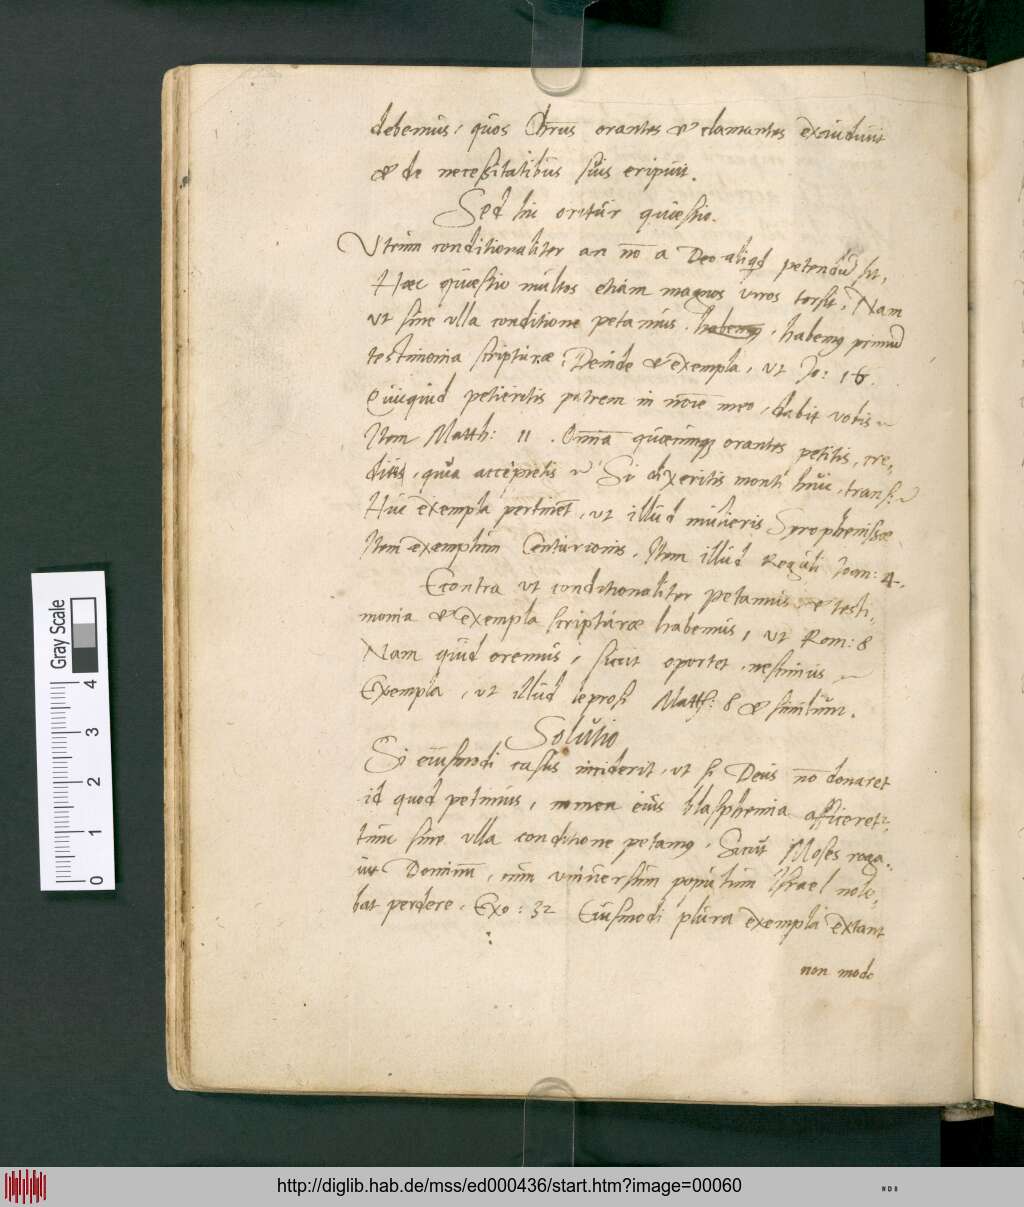 debemus, quos Chr̄us orantes & clamantes exaudiuit
& de necessitatibus suis eripuit.
Sed hic oritur quæstio.
Vtrum conditionaliter an nō a Deo aliqd petendū sit,
Hæc quæstio multos etiam magnos viros torsit, Nam
ut sine ulla conditione petamus, habemꝰ, habemꝰ primū
testimonia scripturæ, Deinde & exempla, ut Jo: 16.
Quicquid petieritis patrem in nōīe meo, dabit vobis
Item Matth: 11. Omnia quæcunqꝫ orantes petitis, cre,
ditis, quia accipietis Si dixeritis monti huic, transf:
Huc exempla pertinēt, ut illud mulieris Syrophenissæ
Item exemplum Centurionis, Item illud Reguli Joan: 4.
Econtra ut conditionaliter petamus & testi,
monia & exempla scripturæ habemus, ut Rom: 8
Nam quid oremus, sicut oportet, nescimus
Exempla, ut illud leprosi Matth: 8 & similium.
Solutio
Si eiusmodi casus inciderit, ut si Deus nō donaret
id quod petimus, nomen eius blasphemia afficeret:,
tunc sine ulla conditione petamꝰ, Sicut Moses roga,
uit Dominū, cum vniuersum populum Israel vole,
bat perdere, Exo: 32 Eiusmodi plura exempla extant
non modo
Gray Scale
0 1 2 3 4
http://diglib.hab.de/mss/ed000436/start.htm?image=00060